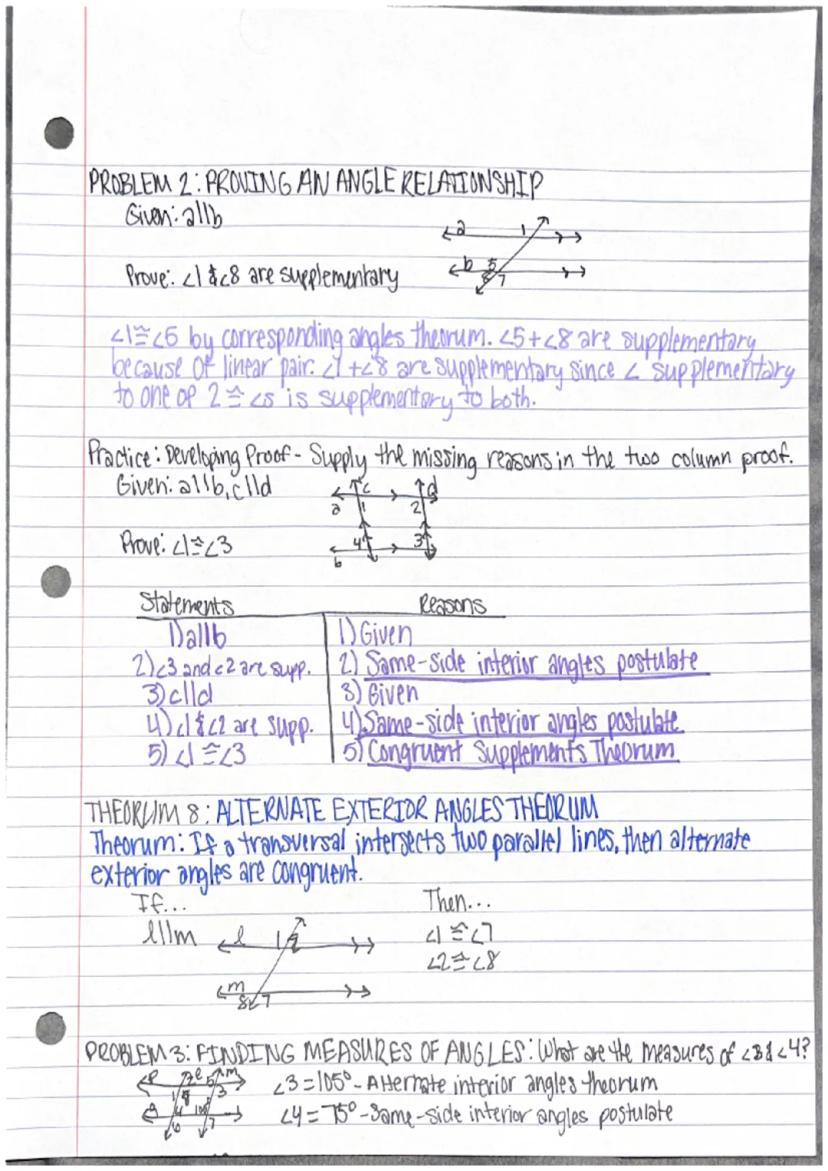 PROBLEM 2: PROVING AN ANGLE RELATIONSHIP
Given: a||b
a 1
b 5
8 7
Prove: ∠1 & ∠8 are supplementary
∠1≅∠5 by corresponding angles theorum. ∠5+∠8 are supplementary
because of linear pair. ∠1+∠8 are supplementary since ∠ supplementary
to one of 2 ≅ ∠s is supplementary to both.
Practice: Developing Proof - Supply the missing reasons in the two column proof.
Given: a||b, c||d
c d
a 1 2
Prove: ∠1≅∠3
4 3
b
Statements Reasons
1) a||b 1) Given
2) ∠3 and ∠2 are supp. 2) Same-side interior angles postulate
3) c||d 3) Given
4) ∠1 & ∠2 are supp. 4) Same-side interior angles postulate
5) ∠1 ≅ ∠3 5) Congruent Supplements Theorum
THEORUM 8: ALTERNATE EXTERIOR ANGLES THEORUM
Theorum: If a transversal intersects two parallel lines, then alternate
exterior angles are congruent.
If... Then...
l||m l 1 2 ∠1 ≅ ∠7
∠2 ≅ ∠8
m
8 7
PROBLEM 3: FINDING MEASURES OF ANGLES: What are the measures of ∠3 & ∠4?
p 2 l 5 m ∠3 = 105° - Alternate interior angles theorum
1 8 3
4 105 ∠4 = 75° - Same-side interior angles postulate
6 7